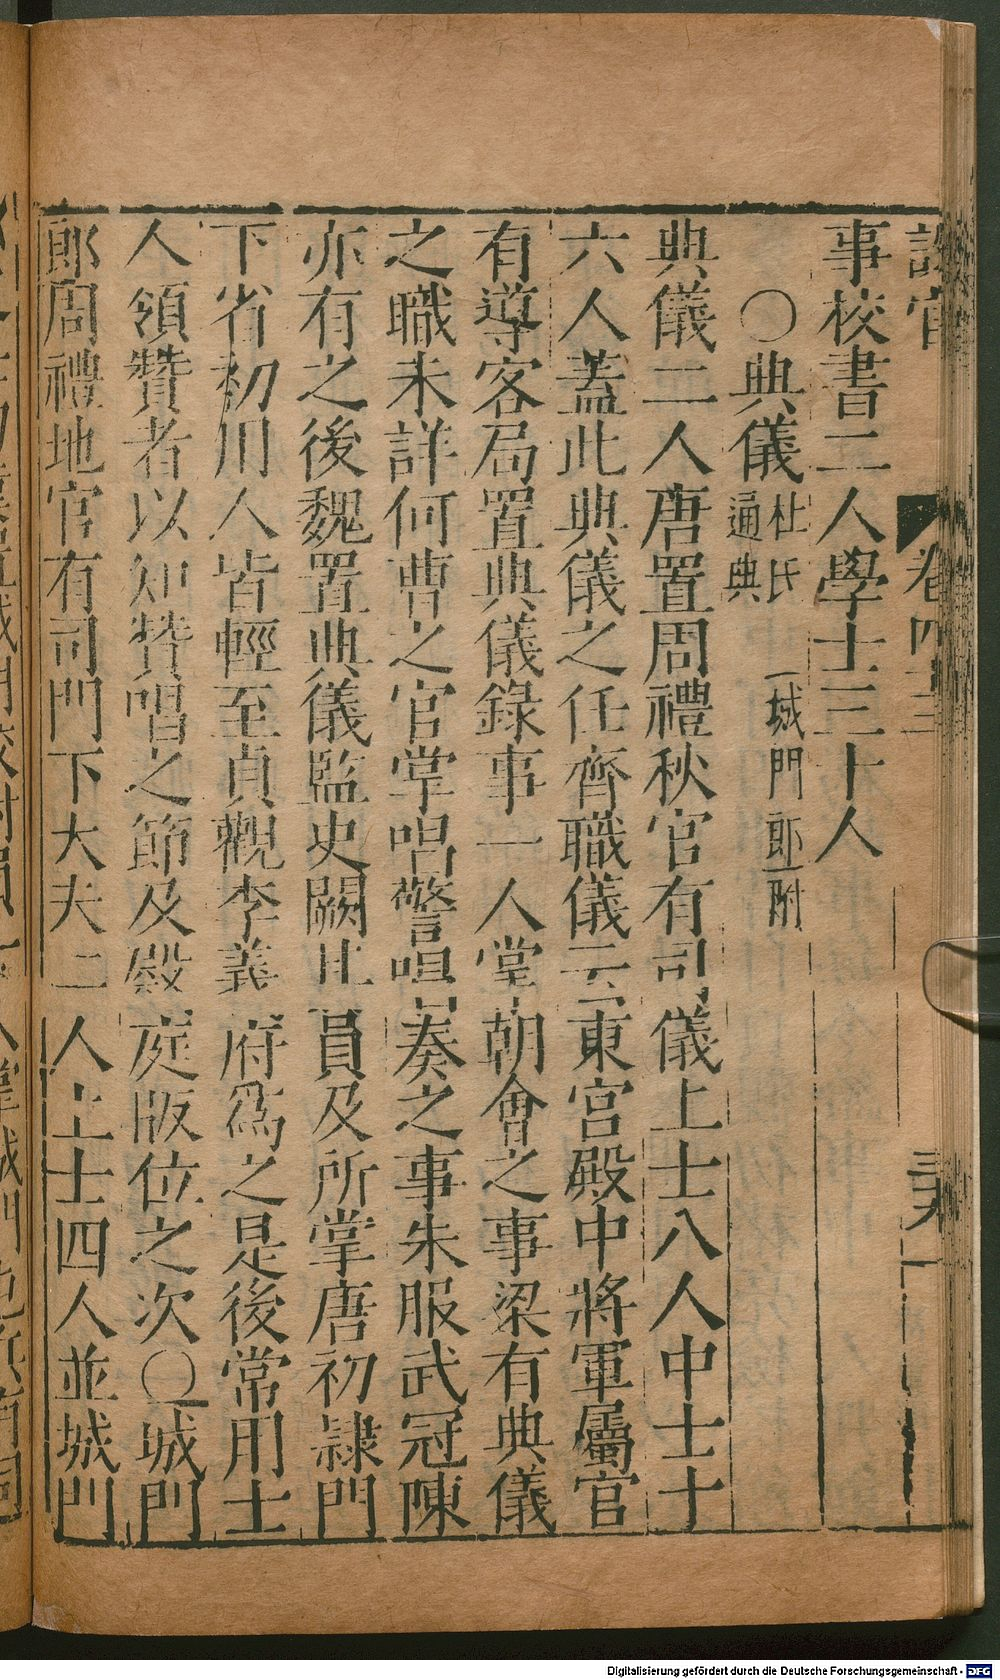 設官 卷四三 三九
事校書二人學士三十人
〇典儀 杜氏通典 城門郎附
典儀二人唐置周禮秋官有司儀上士八人中士十
六人蓋此典儀之任齊職儀云東宮殿中將軍屬官
有導客局置典儀錄事一人掌朝會之事梁有典儀
之職未詳何曹之官掌唱警唱奏之事朱服武冠陳
亦有之後魏置典儀監史闕其員及所掌唐初隷門
下省初用人皆輕至貞觀李義府為之是後常用士
人領贊者以知贊唱之節及殿庭版位之次〇城門
郎周禮地官有司門下大夫二人上士四人並城門
Digitalisierung gefördert durch die Deutsche Forschungsgemeinschaft - DFG